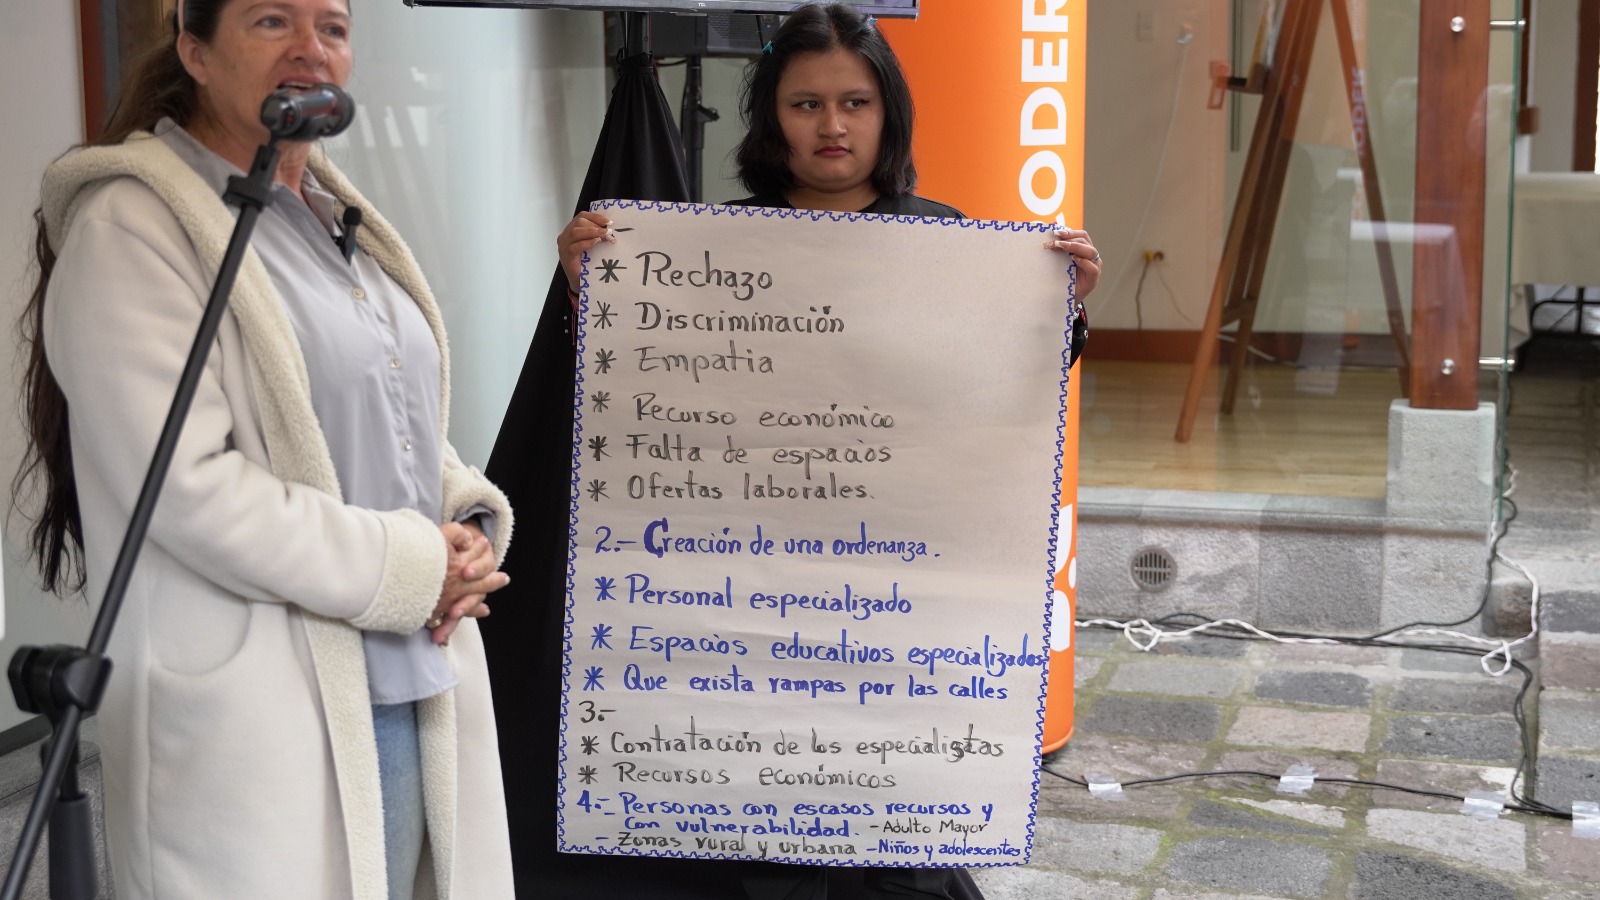 TCL
ODER
.-
* Rechazo
* Discriminación
* Empatia
* Recurso económico
* Falta de espacios
* Ofertas laborales.
2.- Creación de una ordenanza.
* Personal especializado
* Espacios educativos especializados
* Que exista rampas por las calles
3.-
* Contratación de los especialistas
* Recursos económicos
4.- Personas con escasos recursos y
con vulnerabilidad. - Adulto Mayor
- Zonas rural y urbana - Niños y adolescentes